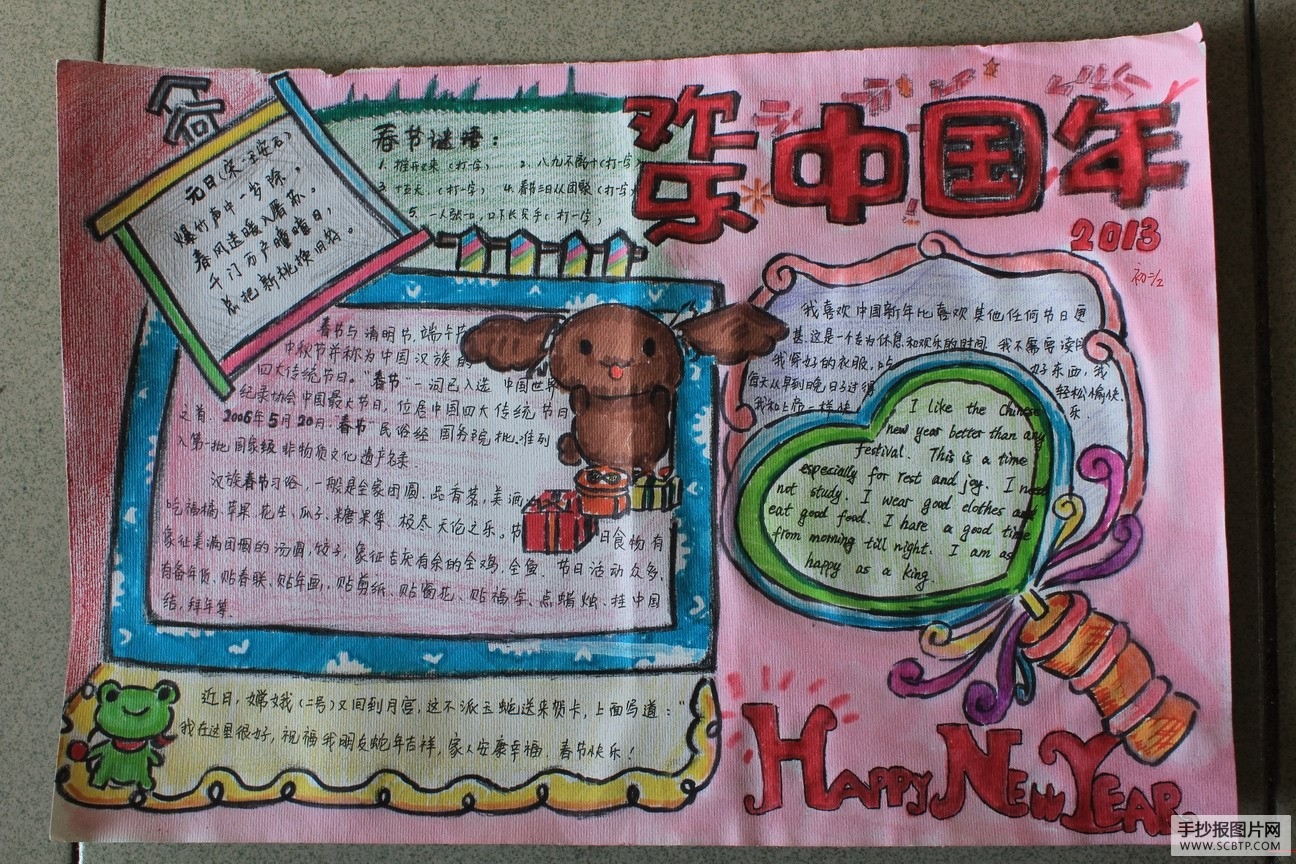 欢乐中国年
2013
初二/2
元日(宋·王安石)
爆竹声中一岁除,
春风送暖入屠苏。
千门万户曈曈日,
总把新桃换旧符。
春节谜语:
1. 推开又来(打一字) 2. 八九不离十(打一字)
3. 十五天 (打一字) 4. 春节三日人团聚(打一字)
5. 一人张一口,口下长只手(打一字)
春节与清明节,端午节
中秋节并称为中国汉族的
四大传统节日。“春节”一词已入选 中国世界
纪录协会中国最大节日,位居中国四大传统节日
之首. 2006年5月20日,“春节”民俗经 国务院批准列
入第一批国家级非物质文化遗产名录.
汉族春节习俗,一般是全家团圆.品香茗,美酒
吃福橘、苹果、花生、瓜子、糖果等、极尽天伦之乐。节
日食物有
象征美满团圆的汤圆,饺子,象征吉庆有余的全鸡,全鱼. 节日活动众多、
有备年货、贴春联、贴年画、贴剪纸、贴窗花、贴福字、点蜡烛、挂中国
结,拜年等.
我喜欢中国新年比喜欢其他任何节日更
甚.这是一个专为休息和欢乐的时间 我不需要读
我穿好的衣服,吃 好东西,我
每天从早到晚,日子过得 轻松愉快.
我和上帝一样快 乐.
I like the Chinese
new year better than any
festival. This is a time
especially for rest and joy. I need
not study. I wear good clothes and
eat good food. I have a good time
from morning till night. I am as
happy as a king.
近日,嫦娥(二号)又回到月宫,这不派玉蛇送来贺卡,上面写道:“
我在这里很好,祝福我朋友蛇年吉祥,家人安康幸福. 春节快乐!
HAPPY NEW YEAR
手抄报图片网
WWW.SCBTP.COM